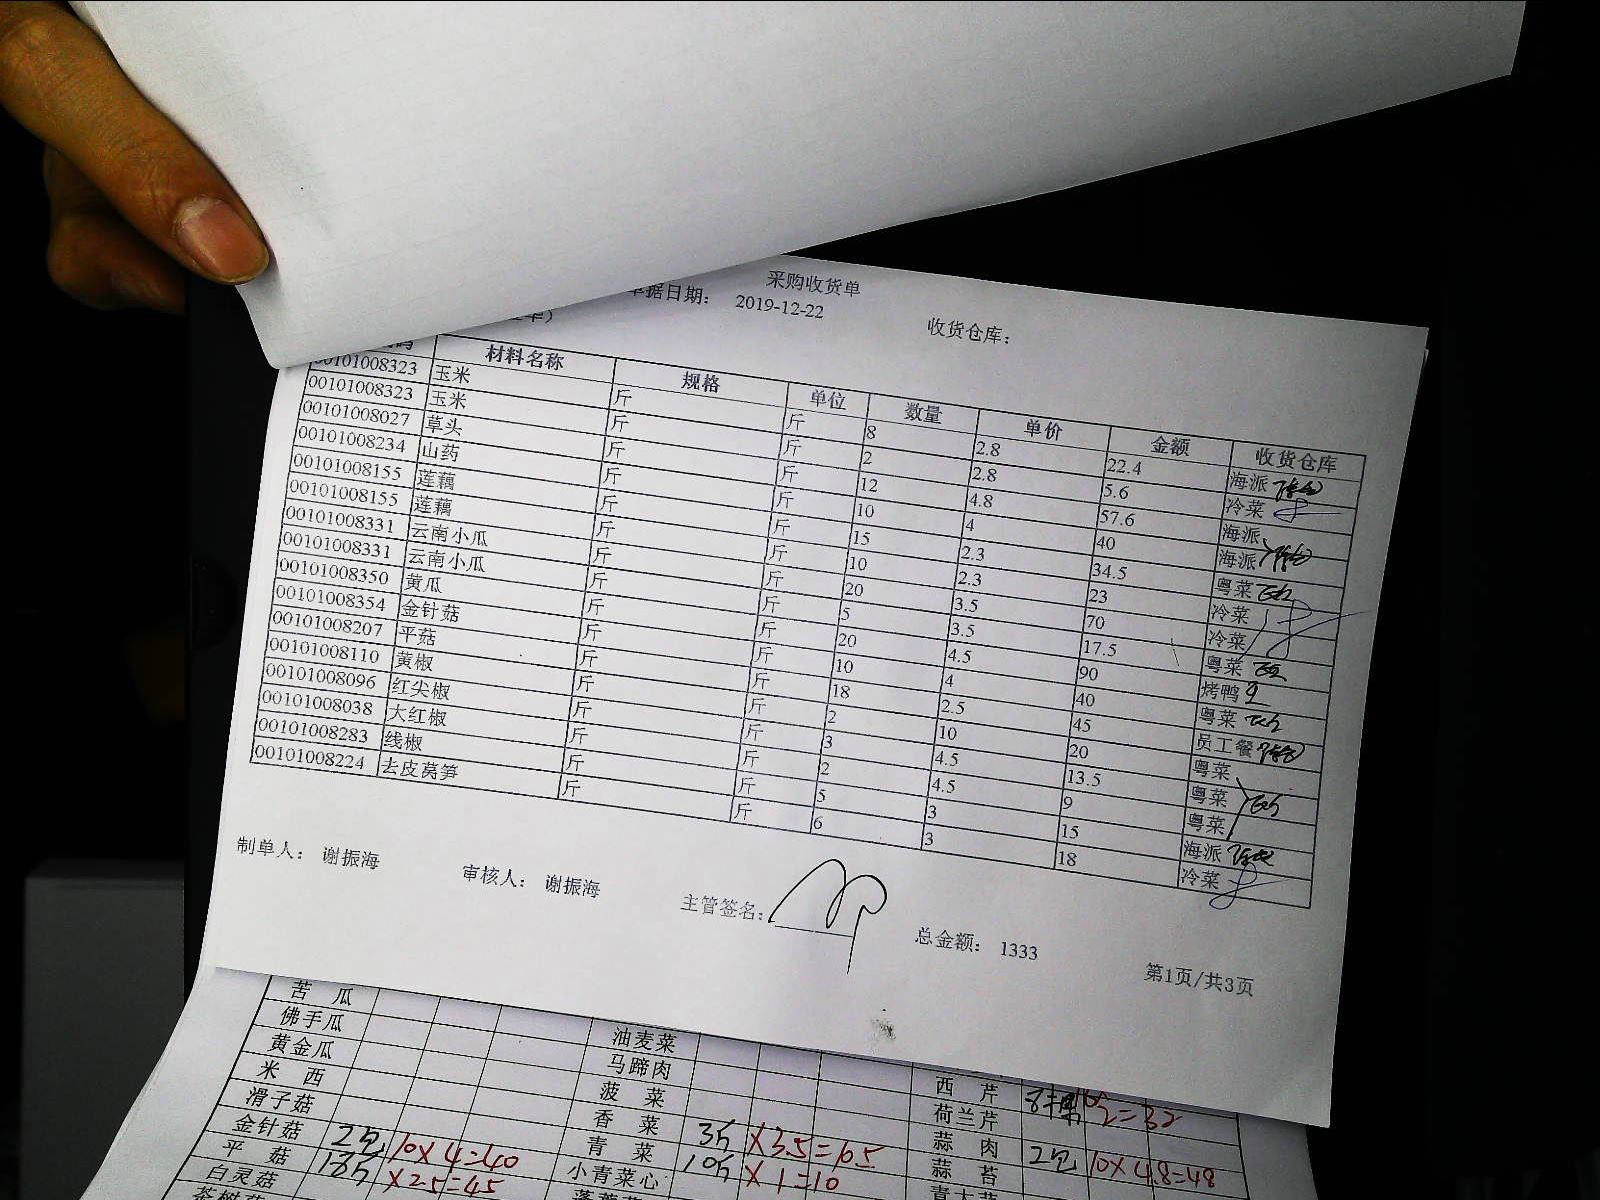 采购收货单
单据日期： 2019-12-22
收货仓库：
材料名称 规格 单位 数量 单价 金额 收货仓库
00101008323 玉米 斤 斤 8 2.8 22.4 海派
00101008323 玉米 斤 斤 2 2.8 5.6 冷菜
00101008027 草头 斤 斤 12 4.8 57.6 海派
00101008234 山药 斤 斤 10 4 40 海派
00101008155 莲藕 斤 斤 15 2.3 34.5 粤菜
00101008155 莲藕 斤 斤 10 2.3 23 冷菜
00101008331 云南小瓜 斤 斤 20 3.5 70 冷菜
00101008331 云南小瓜 斤 斤 5 3.5 17.5 粤菜
00101008350 黄瓜 斤 斤 20 4.5 90 烤鸭
00101008354 金针菇 斤 斤 10 4 40 粤菜
00101008207 平菇 斤 斤 18 2.5 45 员工餐
00101008110 黄椒 斤 斤 2 10 20 粤菜
00101008096 红尖椒 斤 斤 3 4.5 13.5 粤菜
00101008038 大红椒 斤 斤 2 4.5 9 粤菜
00101008283 线椒 斤 斤 5 3 15 海派
00101008224 去皮莴笋 斤 斤 6 3 18 冷菜
制单人： 谢振海 审核人： 谢振海 主管签名： 总金额： 1333
第1页/共3页
苦 瓜 油麦菜 西 芹 8 2=32
佛手瓜 马蹄肉 荷兰芹
黄金瓜 菠 菜 蒜 肉 2包 10×4.8=48
米 西 香 菜 3斤 ×3.5= 蒜 苔
滑子菇 青 菜 10斤 ×1=10
金针菇 2包 10×4=40 小青菜心
平 菇 18斤 ×2.5=45
白灵菇